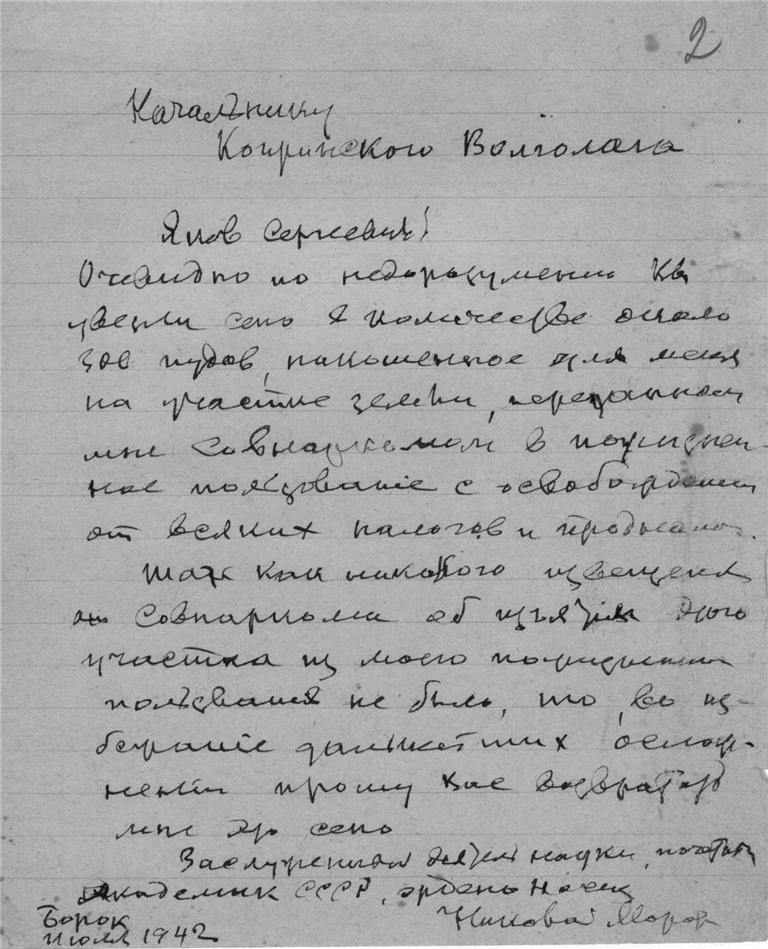 2
Начальнику
Копринского Волголага
Яков Сергеевич!
Очевидно по недоразумению Вы
увезли сено в количестве около
300 пудов, накошенное для меня
на участке земли, переданном
мне Совнаркомом в пожизнен-
ное пользование с освобождением
от всяких налогов и продналога.
Так как никакого извещения
от Совнаркома об изъятии этого
участка из моего пожизненного
пользования не было, то, во из-
бежание дальнейших ослож-
нений прошу Вас возвратить
мне это сено
Заслуженный деятель науки, почетный
академик СССР,
Николай Мороз
Борок
июля 1942